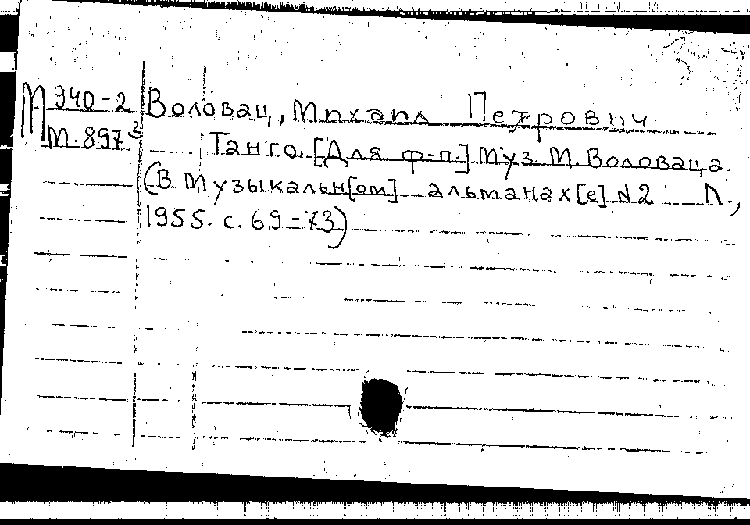 М 940-2 Воловац, Михаил Петрович
М. 897³ Танго. [Для ф-п.] Муз. М. Воловаца.
(В Музыкальн[ом] альманах[е] №2 Л.,
1955. с. 69-73)